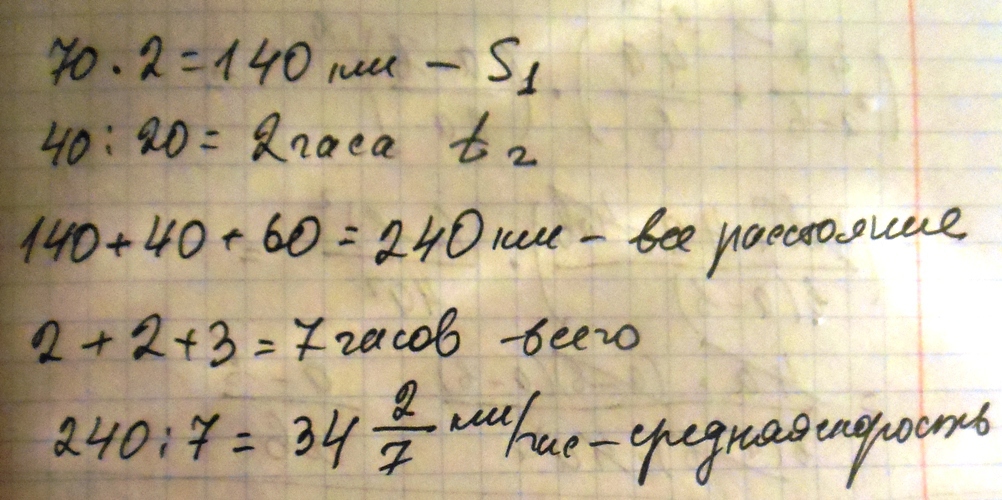 70 · 2 = 140 км – S1
40 : 20 = 2 часа t2
140 + 40 + 60 = 240 км – все расстояние
2 + 2 + 3 = 7 часов – всего
240 : 7 = 34 2/7 км/час – средная скорость